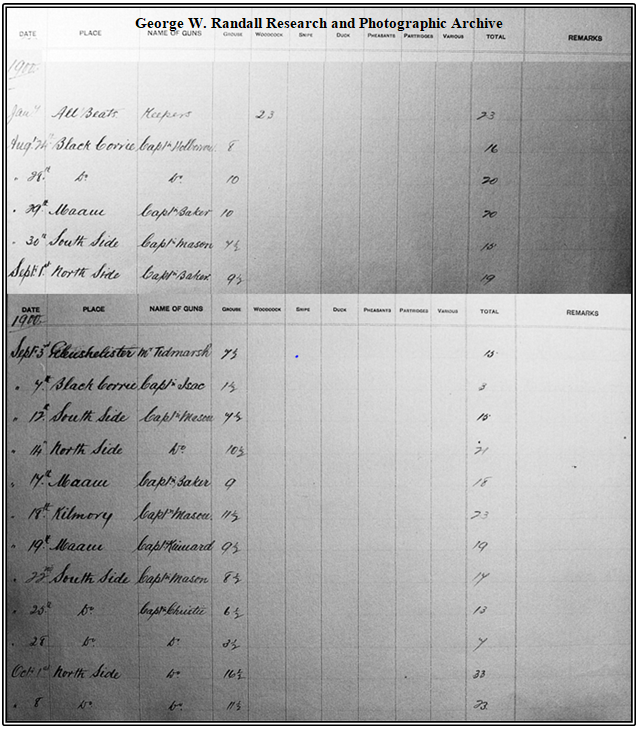 George W. Randall Research and Photographic Archive
DATE PLACE NAME OF GUNS GROUSE WOODCOCK SNIPE DUCK PHEASANTS PARTRIDGES VARIOUS TOTAL REMARKS
1900
Jany All Beats Keepers 23 23
Augt 24th Black Corrie Captn 8 16
" 28th Do Do 10 20
" 29th Maam Captn Baker 10 20
" 30th South Side Captn Mason 7½ 15
Sept 1st North Side Captn Baker 9½ 19
DATE PLACE NAME OF GUNS GROUSE WOODCOCK SNIPE DUCK PHEASANTS PARTRIDGES VARIOUS TOTAL REMARKS
1900
Sept 3rd Mr Tidmarsh 7½ 15
" 7th Black Corrie Captn Isac 1½ 3
" 12th South Side Captn Mason 7½ 15
" 14th North Side Do 10½ 21
" 17th Maam Captn Baker 9 18
" 18th Kilmory Captn Mason 11½ 23
" 19th Maam Captn Kinnard 9½ 19
" 22nd South Side Captn Mason 8½ 17
" 25th Do Captn Christie 6½ 13
" 28 Do Do 3½ 7
Oct 1st North Side Do 16½ 33
" 8 Do Do 11½ 23